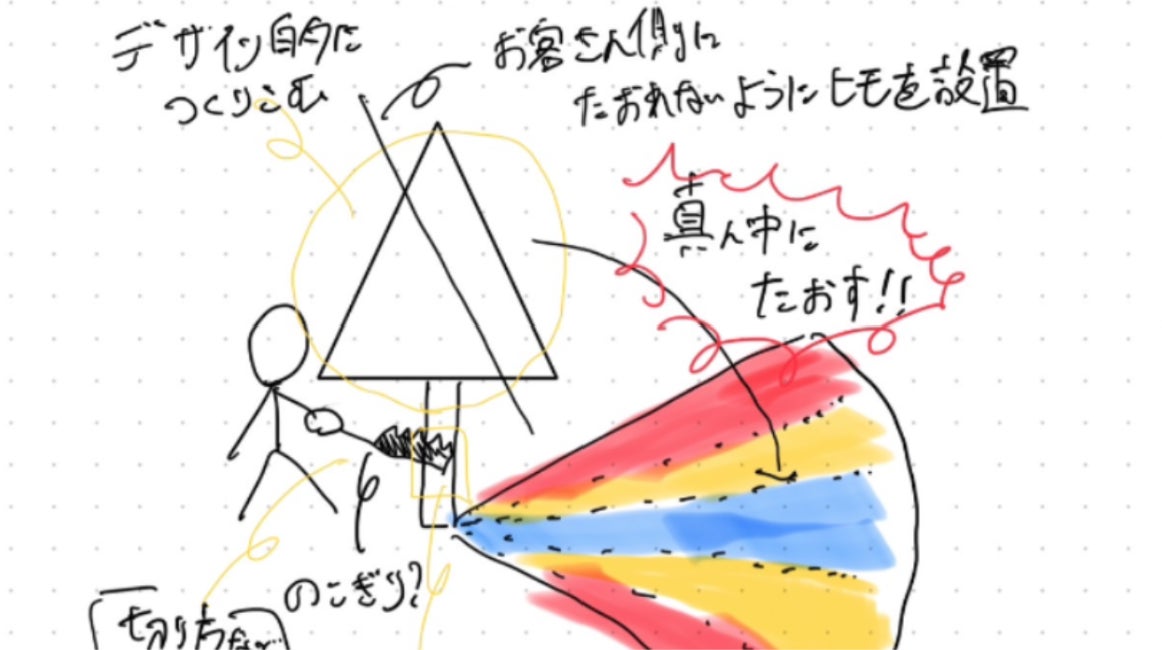 デザイン的に
つくりこむ
お客さん側に
たおれないようにヒモを設置
真ん中に
たおす!!
のこぎり?
切り方